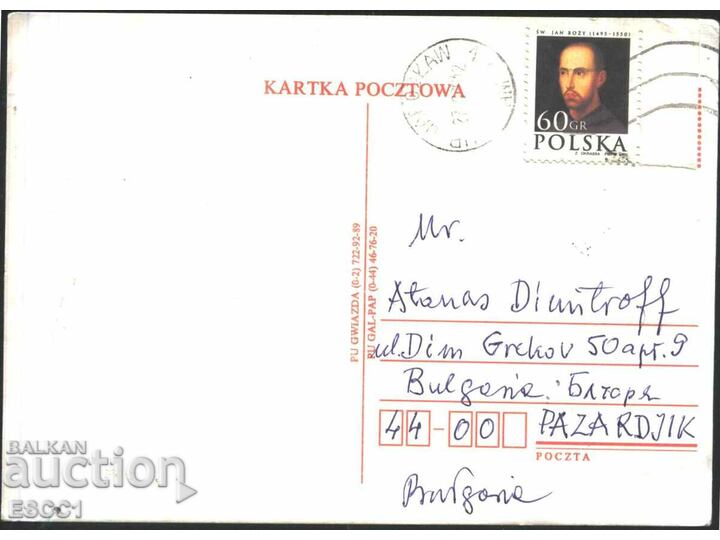 ŚW. JAN BOŻY (1495-1550)
60GR
POLSKA
KARTKA POCZTOWA
PU GWIAZDA (0-2) 722-92-89
PU GAL-PAP (0-44) 46-76-20
Mr.
Atanas Dimitroff
ul. Dim Grekov 50 apt. 9
Bulgaria.
44-00
PAZARDJIK
POCZTA
Bulgaria
BALKAN
auction
ESCC1